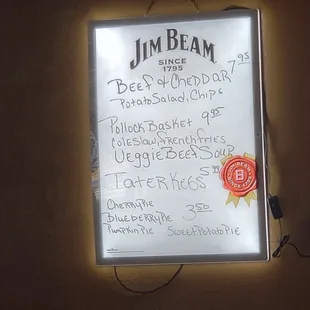 JIM BEAM
SINCE
1795
BEEF & CHEDDAR 7.95
POTATO SALAD, CHIPS
POLLOCK BASKET 9.95
COLESLAW, FRENCH FRIES
VEGGIE BEEF SOUP
TATER KEGS 5.99
CHERRY PIE
BLUEBERRY PIE 3.50
PUMPKIN PIE SWEET POTATO PIE